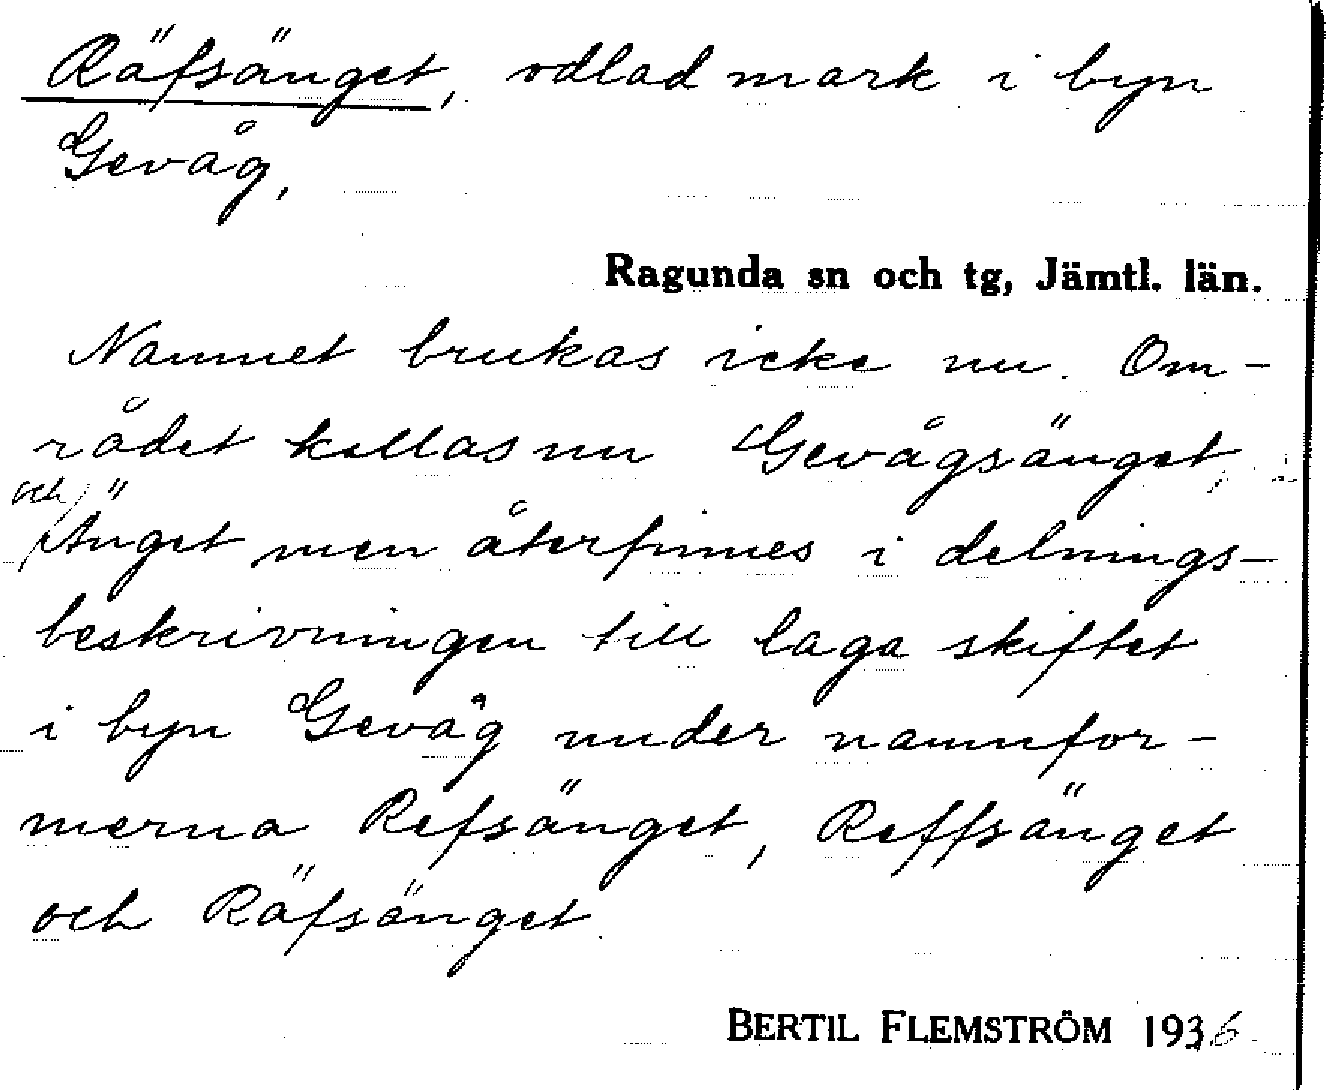 Räfsänget, odlad mark i byn
Gevåg,
Ragunda sn och tg, Jämtl. län.
Namnet brukas icke nu. Om-
rådet kallas nu Gevågsänget,
och
Änget men återfinnes i delnings-
beskrivningen till laga skiftet
i byn Gevåg under namnfor-
merna Refsänget, Reffsänget
och Räfsänget.
BERTIL FLEMSTRÖM 1936